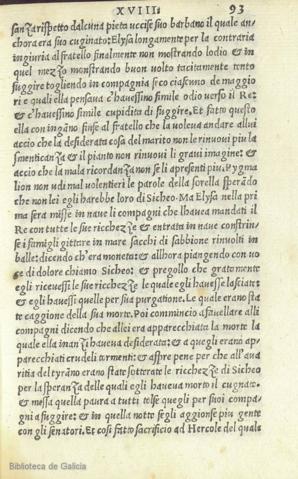 XVIII. 93
sanza rispetto dalcuna pieta uccise suo barbano il quale an-
chora era suo cuginato: Elysa longamente per la contraria
ingiuria al fratello finalmente non mostrando lodio & in
quel mezzo monstrando buon uolto tacitamente tento
fuggire togliendo in compagnia seco ciascuno de maggio
ri e quali ella pensaua c'hauessino simile odio uerso il Re:
& c'hauessino simile cupidita di fuggire. Et fatto questo
ella con ingãno finse al fratello che la uoleua andare allui
accio che la desiderata cosa del marito non le rinuoui piu la
smenticanza & il pianto non rinuoui li graui imagine: &
accio che la mala ricordanza non se li apresenti piu. Pygma
lion non udi mal uolentieri le parole della sorella sperãdo
che non lei egli harebbe loro di Sicheo. Ma Elysa nella pri
ma sera misse in naue li compagni che lhauea mandati il
Re con tutte le sue ricchezze & entrata in naue constrin-
se i famigli gittare in mare sacchi di sabbione rinuolti in
balle: dicendo ch'era moneta: & allhora piangendo con uo
ce di dolore chiamo Sicheo: & pregollo che gratamente
egli riceuessi le sue ricchezze le quale egli hauesse lasciate:
& egli hauessi quelle per sua purgatione. Le quale erano sta
te caggione della sua morte. Poi commincio a fauellare alli
compagni dicendo che allei era apparecchiata la morte la
quale ella inanzi haueua desiderata: & a quegli erano ap-
parecchiati crudeli tormenti: & aspre pene per che all'aua
ritia del tyrãno erano state sotterate le ricchezze di Sicheo
per la speranza delle quali egli haueua morto il cugnato:
& messa quella paura a tutti tolse quegli per suoi compa-
gni a fuggire: & in quella notte segli aggionse piu gente
con gli senatori. Et cosi fatto sacrificio ad Hercole del quale
Biblioteca de Galicia